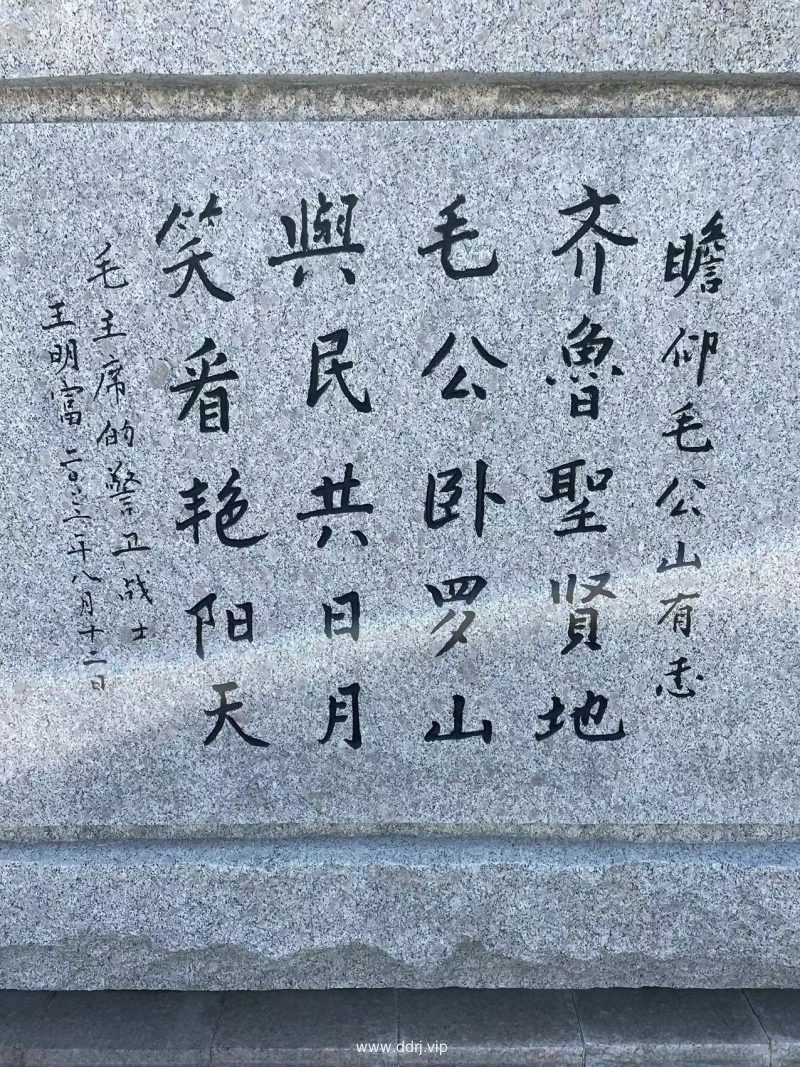 瞻仰毛公山有
齐魯聖賢地
毛公卧罗山
與民共日月
笑看艳阳天
毛主席的警卫战士
王明富二〇二三年八月十二日
www.ddrj.vip